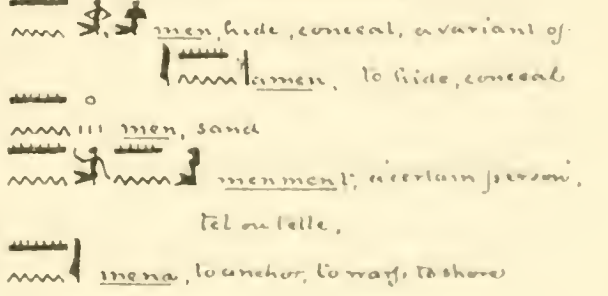 men, hide, conceal, a variant of
amen, to hide, conceal
men, sand
menment, a certain person,
tel ou telle,
mena, to anchor, to warp, to shore